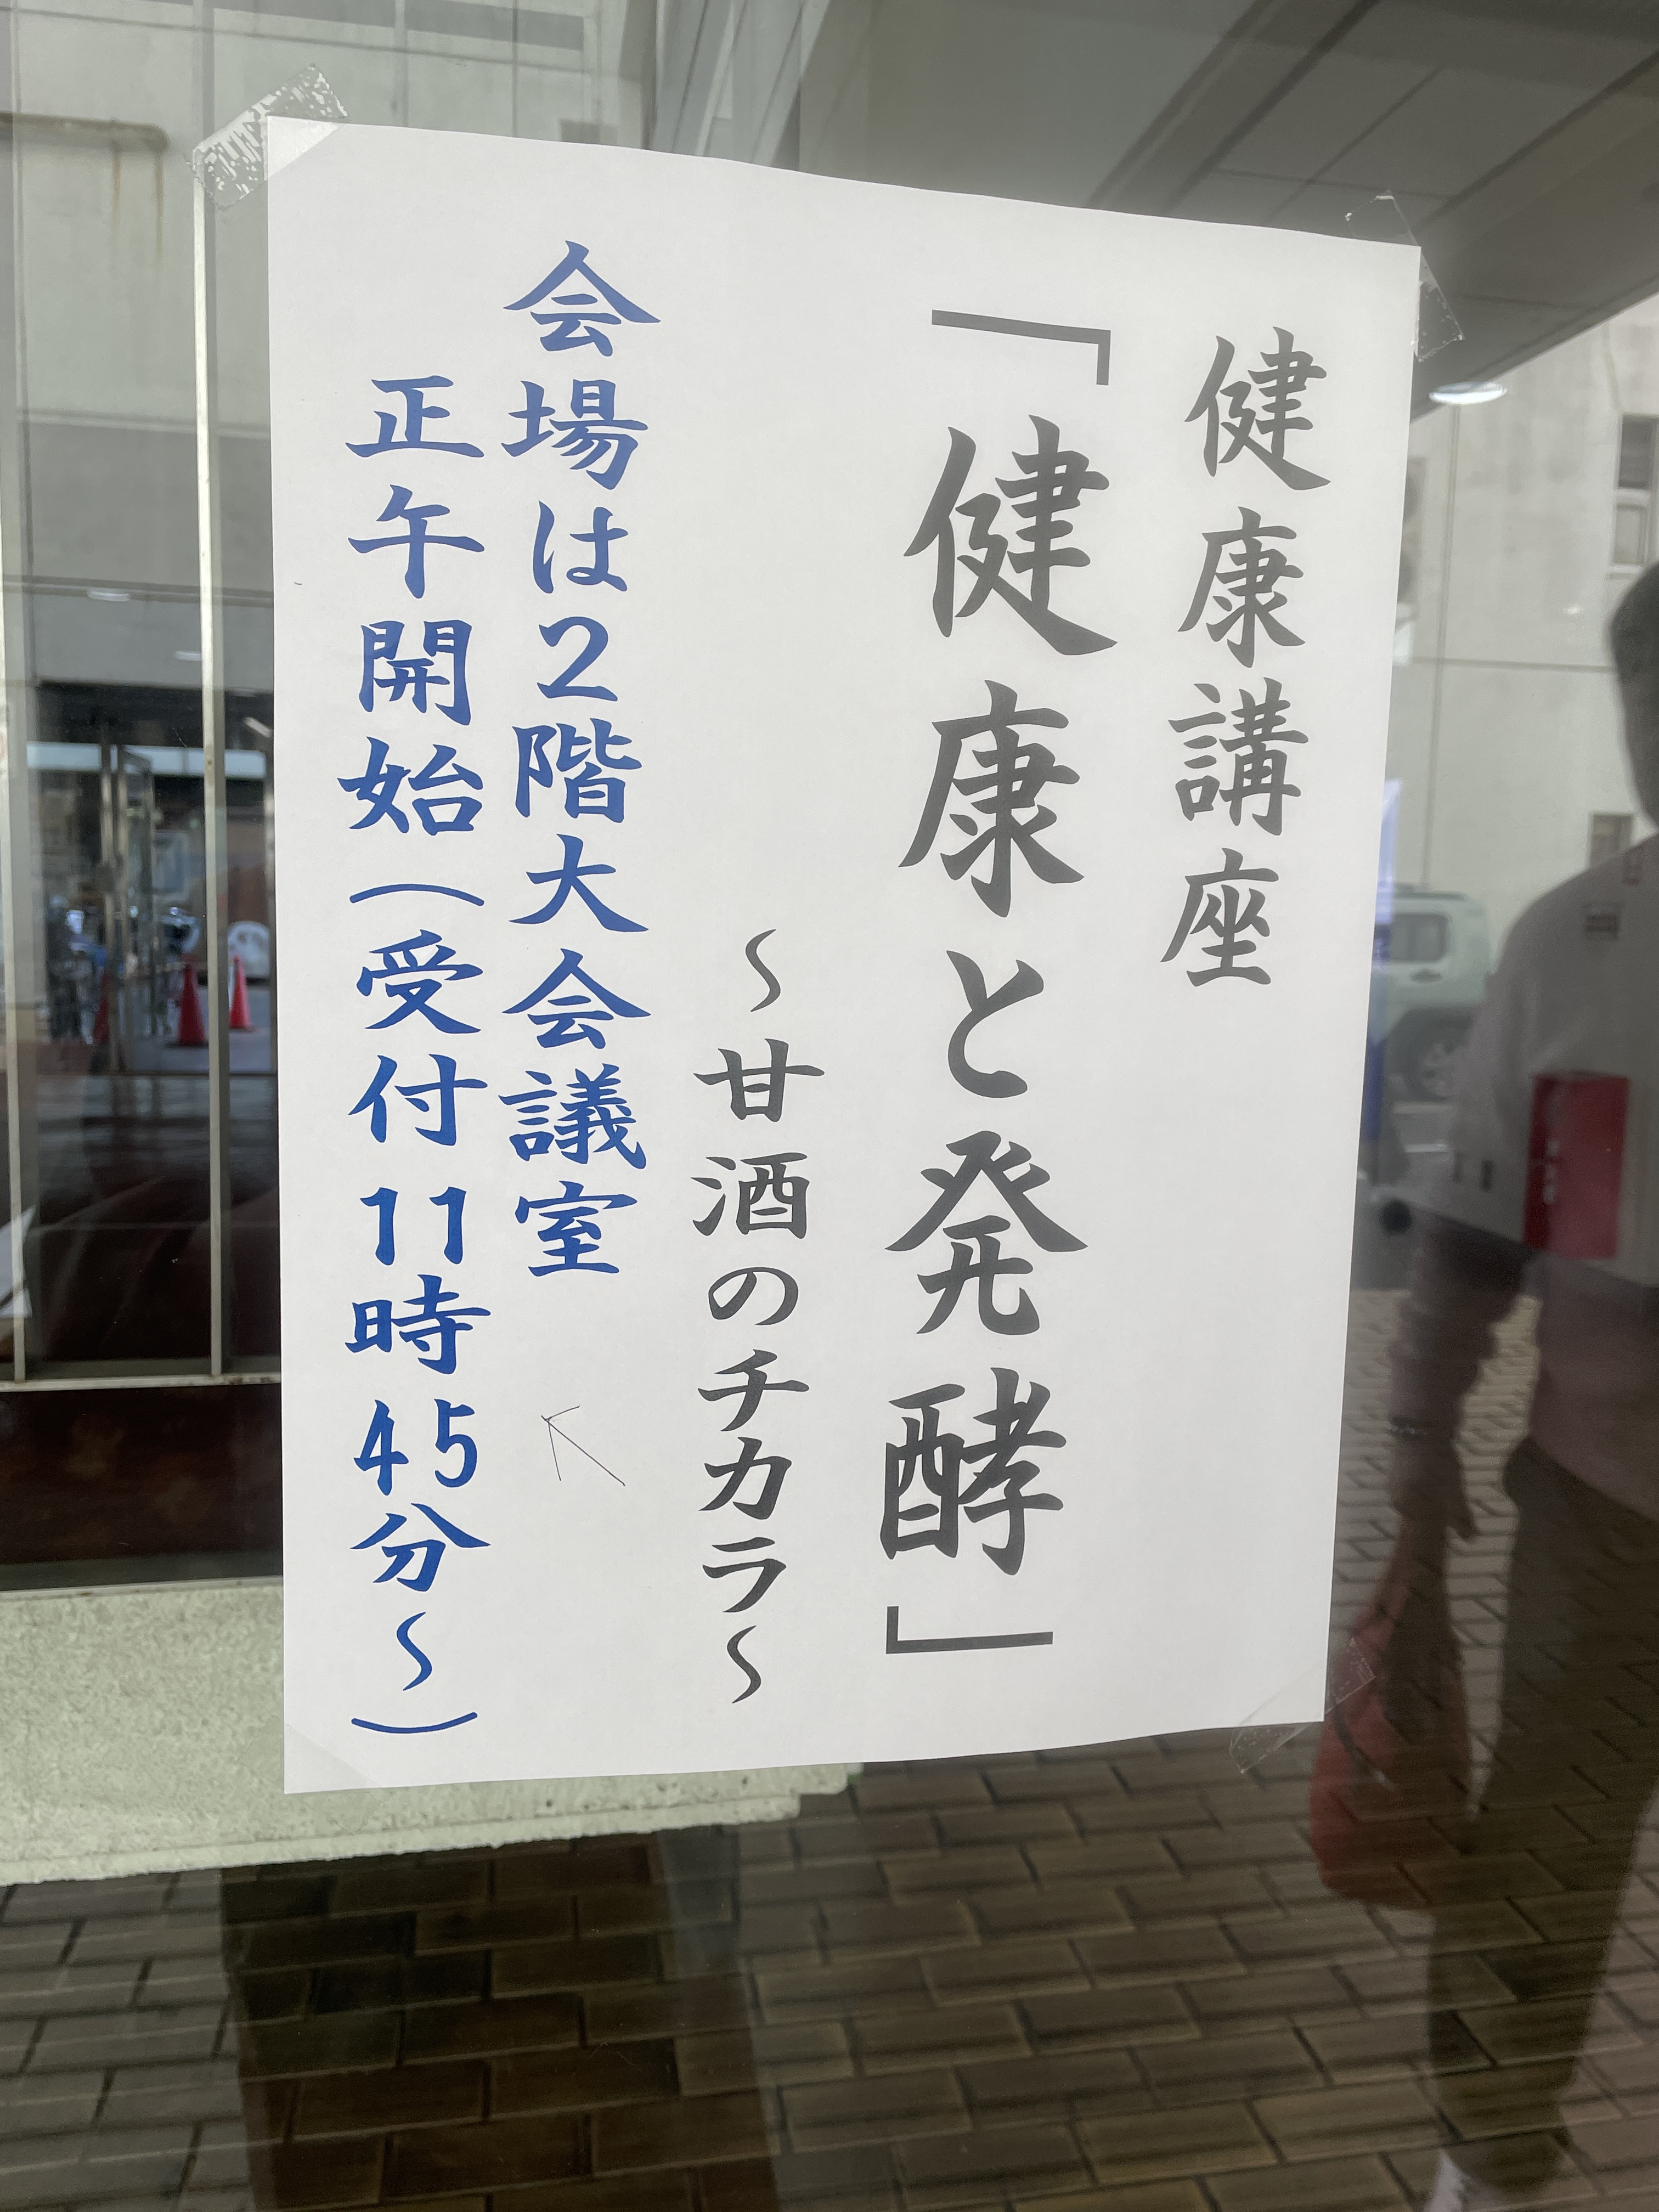 健康講座
「健康と発酵」
～甘酒のチカラ～
会場は2階大会議室
正午開始(受付11時45分～)